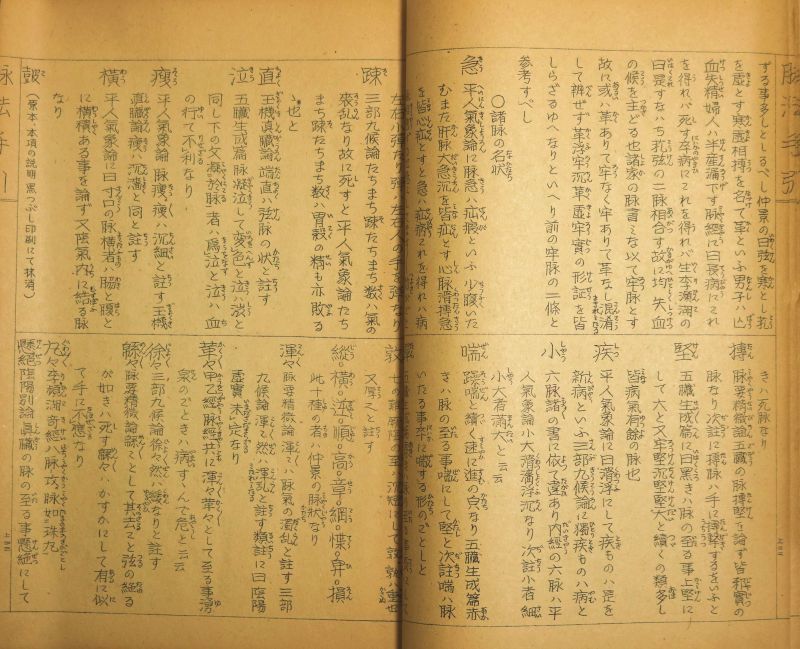 脈法手引
ずる事多しとしるべし仲景の曰弦を寒とし芤
を虚とす寒虚相搏を名て革といふ男子ハ亡
血失精婦人ハ半産漏下す脉經に曰長病にこれ
を得れバ死す卒病にこれを得れバ生李瀕湖の
曰是すなハち芤弦の二脈相合す故に均失血
の候を主どる也諸家の脉書を以て牢脉とす
故に或ハ革ありて牢なく牢ありて革なし混淆
して辨ぜず革浮牢沉革虚牢實の形証を皆
しらざるゆへなりといへり前の牢脉の二條と
参考すべし
〇諸脉の名状
急 平人氣象論に脉急ハ疝瘕といふ少腹いた
むまた肝脉大急沉を皆疝とす心脉滑搏急
を皆心疝とす急ハ疝病これを得れハ病
搏 脉要精微論五臓の脉搏堅を論ず皆邪實の
脉なり次註に搏脉ハ手に搏撃するをいふと
堅 五臓生成篇に曰黒き脉の至る事上堅に
して大と又牢堅沉堅堅大と續くの類多し
皆病氣有餘の脉也
疾 平人氣象論に曰滑浮にして疾ものハ是を
新病といふ三部九候論に獨疾ものハ病と
小 六脉諸の書に依て違あり内經の六脉ハ平
人氣象論小大滑濇浮沉なり次註小者細
小大者滿大と云云
喘 躁喘と續く速に進の皃なり五臓生成篇赤
き脉の至る事喘にして堅と次註喘ハ脉
いたる事卒に喘する形のごとしと
疎 三部九候論たちまち疎たちまち数ハ氣の
衰乱なり故に死すと平人氣象論たち
まち疎たちまち数ハ胃穀の精も亦敗る
ゝ也と
直 玉機眞臓論端直ハ弦脉の状と註す
泣 五臓生成篇脉凝泣して変色と泣ハ澁と
同し下の文凝於脉者ハ爲泣と泣ハ血
の行て不利なり
瘦 平人氣象論脉瘦ハ沉細と註す玉機
眞臓論瘦ハ沉濇と同と註す
横 平人氣象論に曰寸口の脉横者ハ脇と腹と
に横積ある事を論ず又陰氣内に結る脉
なり
鼓 (原本・本項の説明 黒つぶし印刷にて抹消。)
又厚しと註す
縱。横。逆。順。高。章。綱。惵。卑。損
此十種の者ハ仲景の脉状なり
渾々 脉要精微論渾々ハ脉氣の濁乱と註す三部
九候論渾々然ハ渾乱と註す類註に曰陰陽
虚實未定なり
革々 甲乙經脉經共に渾々革々として至る事湧
泉のごときハ病すゝんで危と云云
徐々 三部九候論徐々然ハ緩なりと註す
緜々 脉要精微論緜々として其去こと弦の絕る
が如きハ死す緜々ハかすかにして有に似
て手に不應なり
丸々 李瀕湖奇經八脉攷脉如珠丸
懸絕 陰陽別論眞臓の脉の至る事懸絕にして
脉法手引